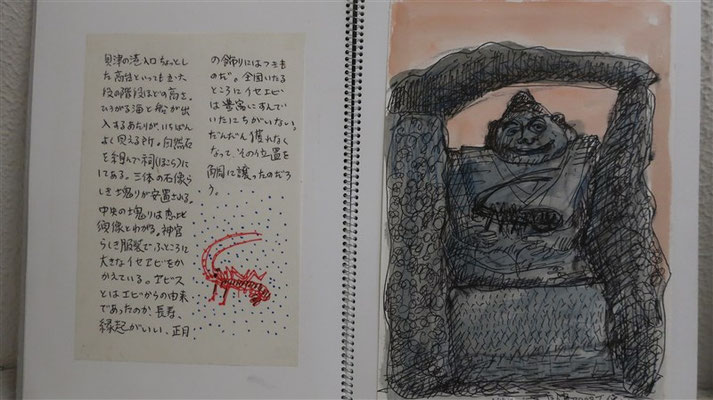 貝津の港入口ちょっとし
た高台といっても五、六
段の階段ほどの高さ。
ひろがる海と船が出
入するあたりが、いちばん
よく見える所。自然石
を組んで祠(ほこら)に
してある。三体の石像ら
しき塊りが安置される。
中央の塊りは恵比
須像とわかる。神官
らしき服装でふところに
大きなイセエビをか
かえている。エビス
とはエビからの由来
であったのか、長寿、
縁起がいい、正月
の飾りにはつきも
のだ。全国いたる
ところにイセエビ
は豊富にすんで
いたにちがいない。
だんだん獲れなく
なって、その位置を
鯛に譲ったのだろ
う。